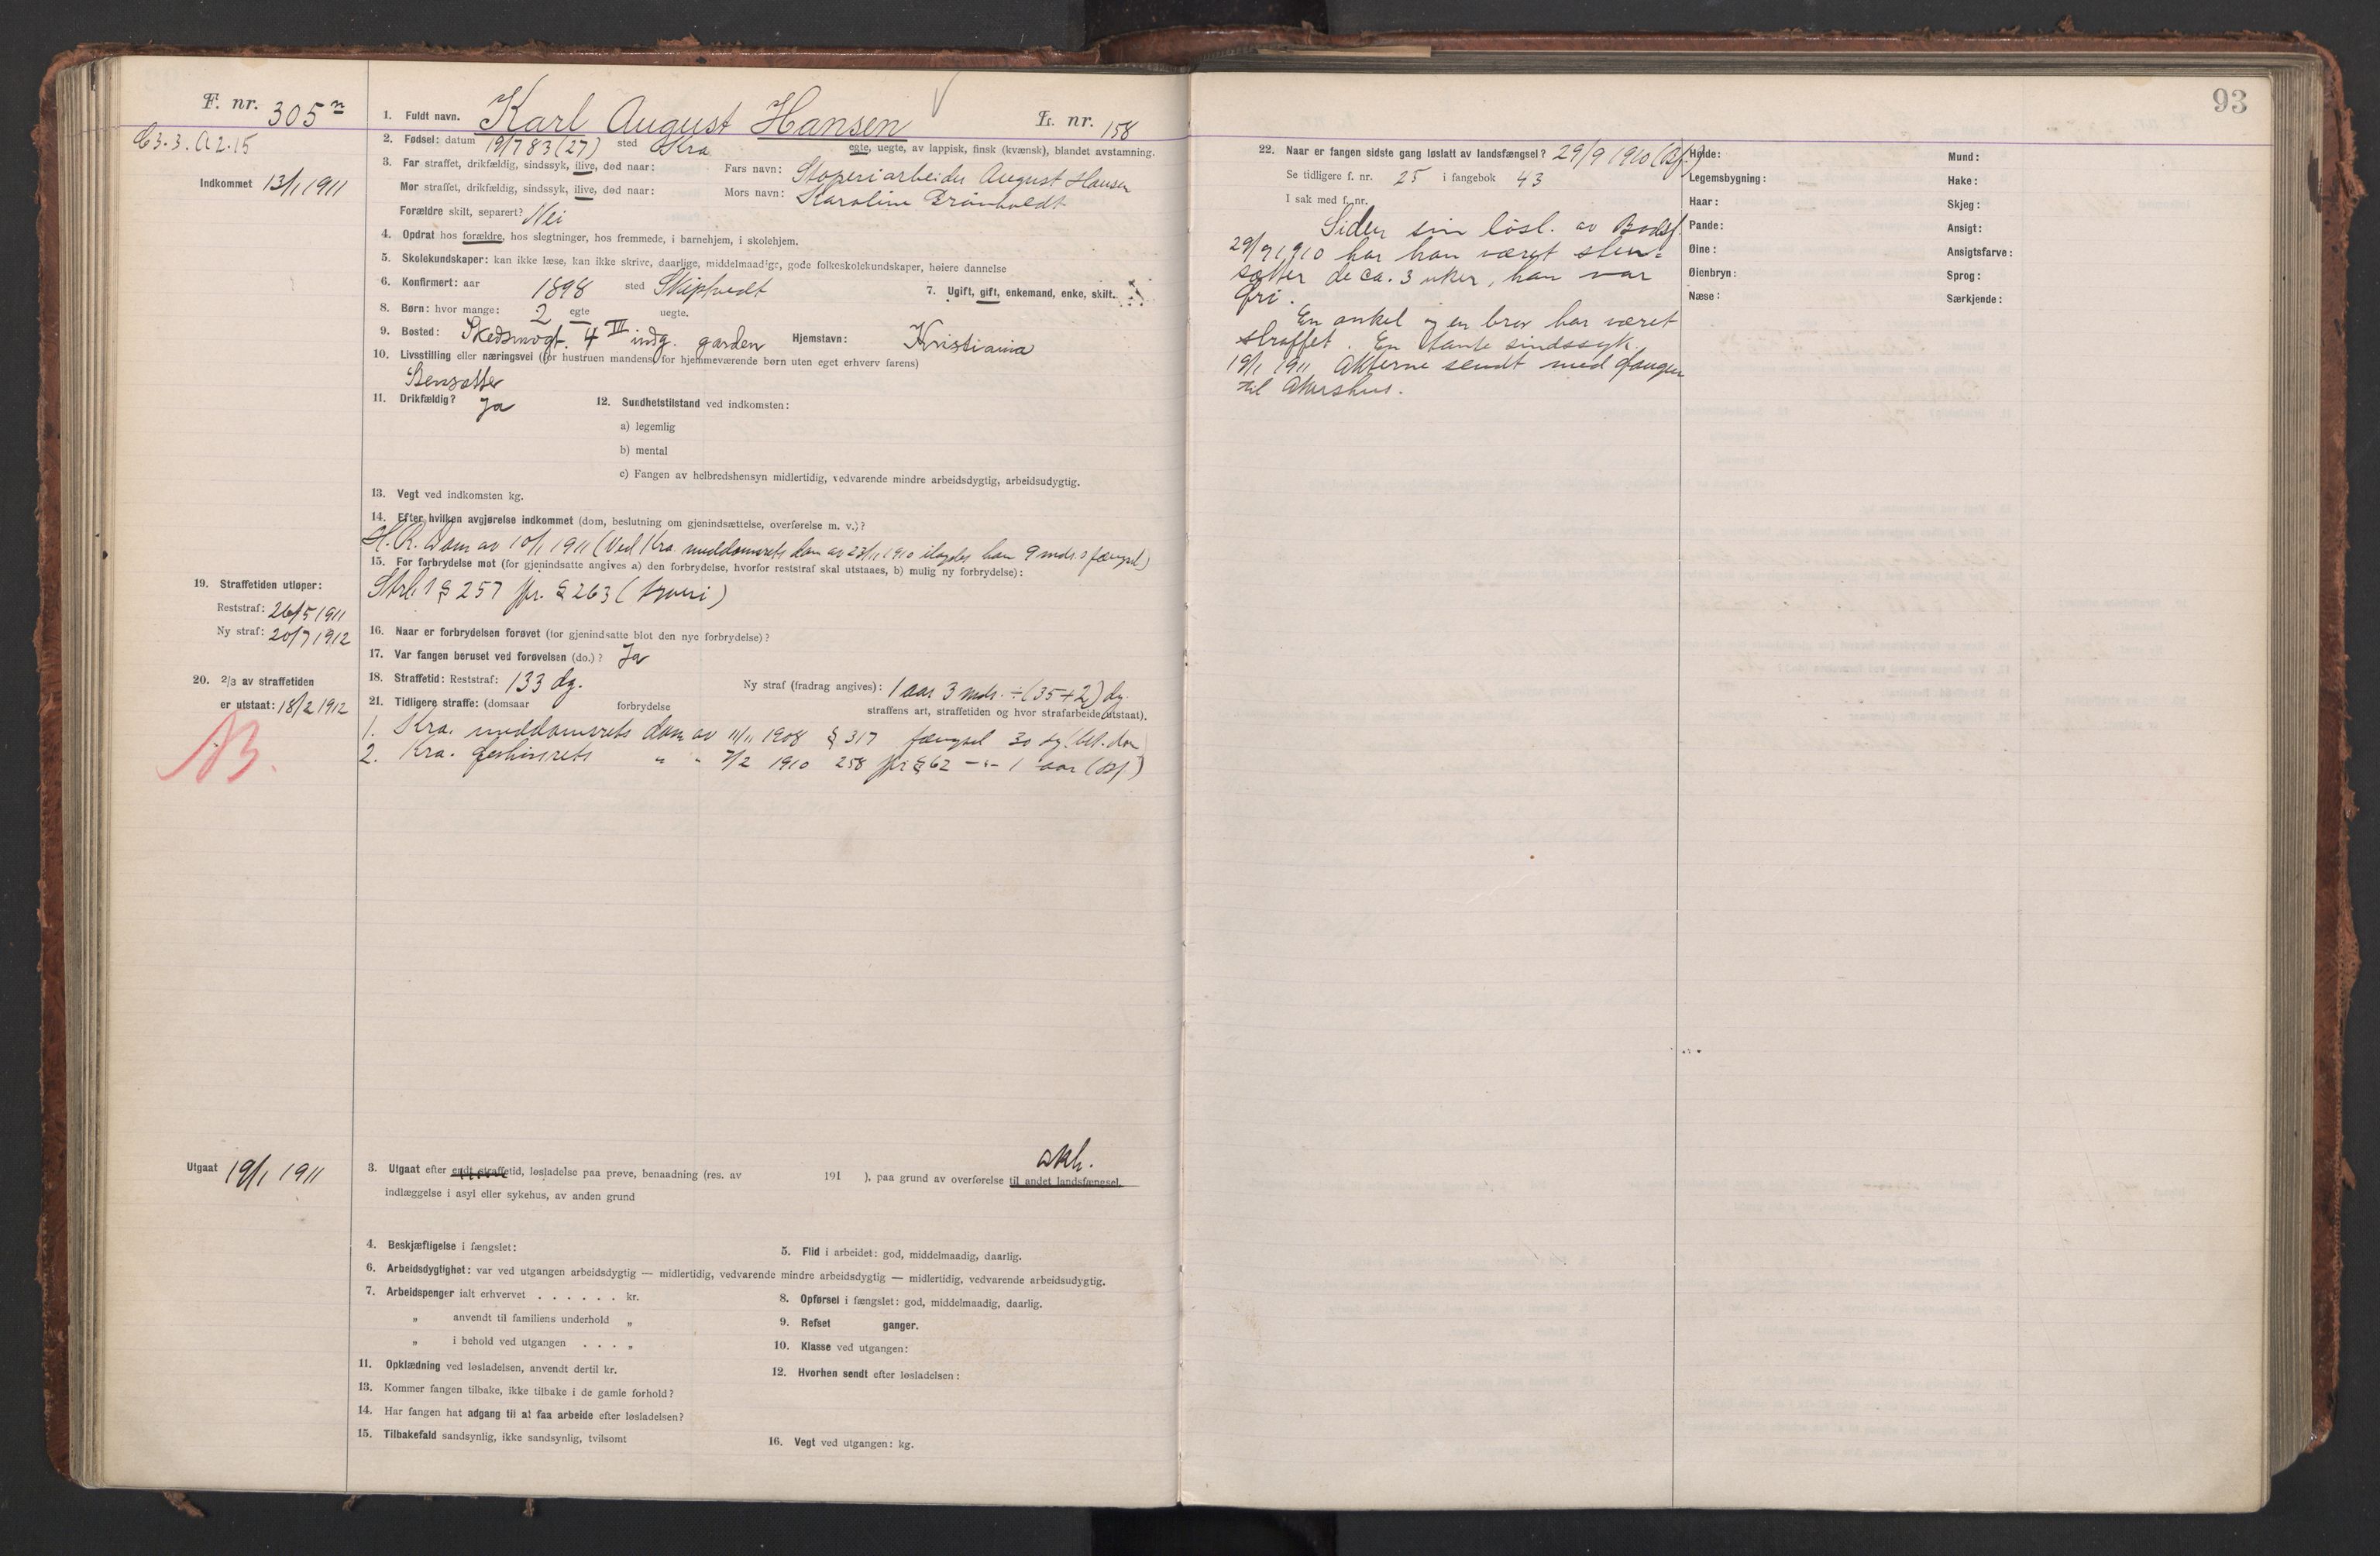 F. nr. 305
C 3. 3. a 2. 15
Indkommet 13/1 1911
1. Fuldt navn. Karl August Hansen L. nr. 158
2. Fødsel: datum 19/7 83 (27) sted Kra egte, uegte, av lappisk, finsk (kvænsk), blandet avstamning.
3. Far straffet, drikfældig, sindssyk, ilive, død naar: Fars navn: Støperiarbeider August Hansen
Mor straffet, drikfældig, sindssyk, ilive, død naar: Mors navn: Karoline
Forældre skilt, separert? Nei
4. Opdrat hos forældre, hos slegtninger, hos fremmede, i barnehjem, i skolehjem.
5. Skolekundskaper: kan ikke læse, kan ikke skrive, daarlige, middelmaadige, gode folkeskolekundskaper, høiere dannelse
6. Konfirmert: aar 1898 sted Skiptvedt 7. Ugift, gift, enkemand, enke, skilt.
8. Børn: hvor mange: 2 egte uegte.
9. Bosted: Skedsmogt. 4 III indg. gården Hjemstavn: Kristiania
10. Livsstilling eller næringsvei (for hustruen mandens, for hjemmeværende børn uten eget erhverv farens)
Stensætter
11. Drikfældig? Ja 12. Sundhetstilstand ved indkomsten:
a) legemlig
b) mental
c) Fangen av helbredshensyn midlertidig, vedvarende mindre arbeidsdygtig, arbeidsudygtig.
13. Vegt ved indkomsten kg.
14. Efter hvilken avgjørelse indkommet (dom, beslutning om gjenindsættelse, overførelse m. v.)?
H. R. dom av 10/1 1911 (Ved Kra meddomsrets dom av 23/11 1910 ilagdes han 9 mdrs fængsel)
15. For forbrydelse mot (for gjenindsatte angives a) den forbrydelse, hvorfor reststraf skal utstaaes, b) mulig ny forbrydelse):
Strl § 257 jfr. § 263 (tyveri)
19. Straffetiden utløper:
Reststraf: 26/5 1911
Ny straf: 20/7 1912
16. Naar er forbrydelsen forøvet (for gjenindsatte blot den nye forbrydelse)?
17. Var fangen beruset ved forøvelsen (do.)? Ja
18. Straffetid: Reststraf: 133 dg. Ny straf (fradrag angives): 1 aar 3 mdr. ÷ (35+2) dg.
20. 2/3 av straffetiden
er utstaat: 18/2 1912
21. Tidligere straffe: (domsaar forbrydelse straffens art, straffetiden og hvor strafarbeide utstaat).
1. Kra. meddomsrets dom av 11/11 1908 § 317 fængsel 30 dg. bet. dom
2. Kra. forhørsrets " " 7/2 1910 258 jfr § 62 -"- 1 aar (Bf)
Utgaat 19/1 1911
akh.
3. Utgaat efter endt straffetid, løsladelse paa prøve, benaadning (res. av 191 ), paa grund av overførelse til andet landsfængsel.
indlæggelse i asyl eller sykehus, av anden grund
4. Beskjæftigelse i fængslet: 5. Flid i arbeidet: god, middelmaadig, daarlig.
6. Arbeidsdygtighet: var ved utgangen arbeidsdygtig — midlertidig, vedvarende mindre arbeidsdygtig — midlertidig, vedvarende arbeidsudygtig.
7. Arbeidspenger ialt erhvervet . . . . . . kr. 8. Opførsel i fængslet: god, middelmaadig, daarlig.
„ anvendt til familiens underhold „ 9. Refset ganger.
„ i behold ved utgangen . . . „ 10. Klasse ved utgangen:
11. Opklædning ved løsladelsen, anvendt dertil kr. 12. Hvorhen sendt efter løsladelsen:
13. Kommer fangen tilbake, ikke tilbake i de gamle forhold?
14. Har fangen hat adgang til at faa arbeide efter løsladelsen?
15. Tilbakefald sandsynlig, ikke sandsynlig, tvilsomt 16. Vegt ved utgangen: kg.
93
22. Naar er fangen sidste gang løslatt av landsfængsel? 29/9 1910 (Bf.)
Se tidligere f. nr. 25 i fangebok 43
I sak med f. nr.
Siden sin løsl. av Bodsf.
29/9 1910 har han været sten-
sætter de ca. 3 uker, han var
fri.
En onkel og en bror har været
straffet. En tante sindssyk.
19/1 1911 Akterne sendt med fangen
til Akershus.
Høide: Mund:
Legemsbygning: Hake:
Haar: Skjeg:
Pande: Ansigt:
Øine: Ansigtsfarve:
Øienbryn: Sprog:
Næse: Særkjende: